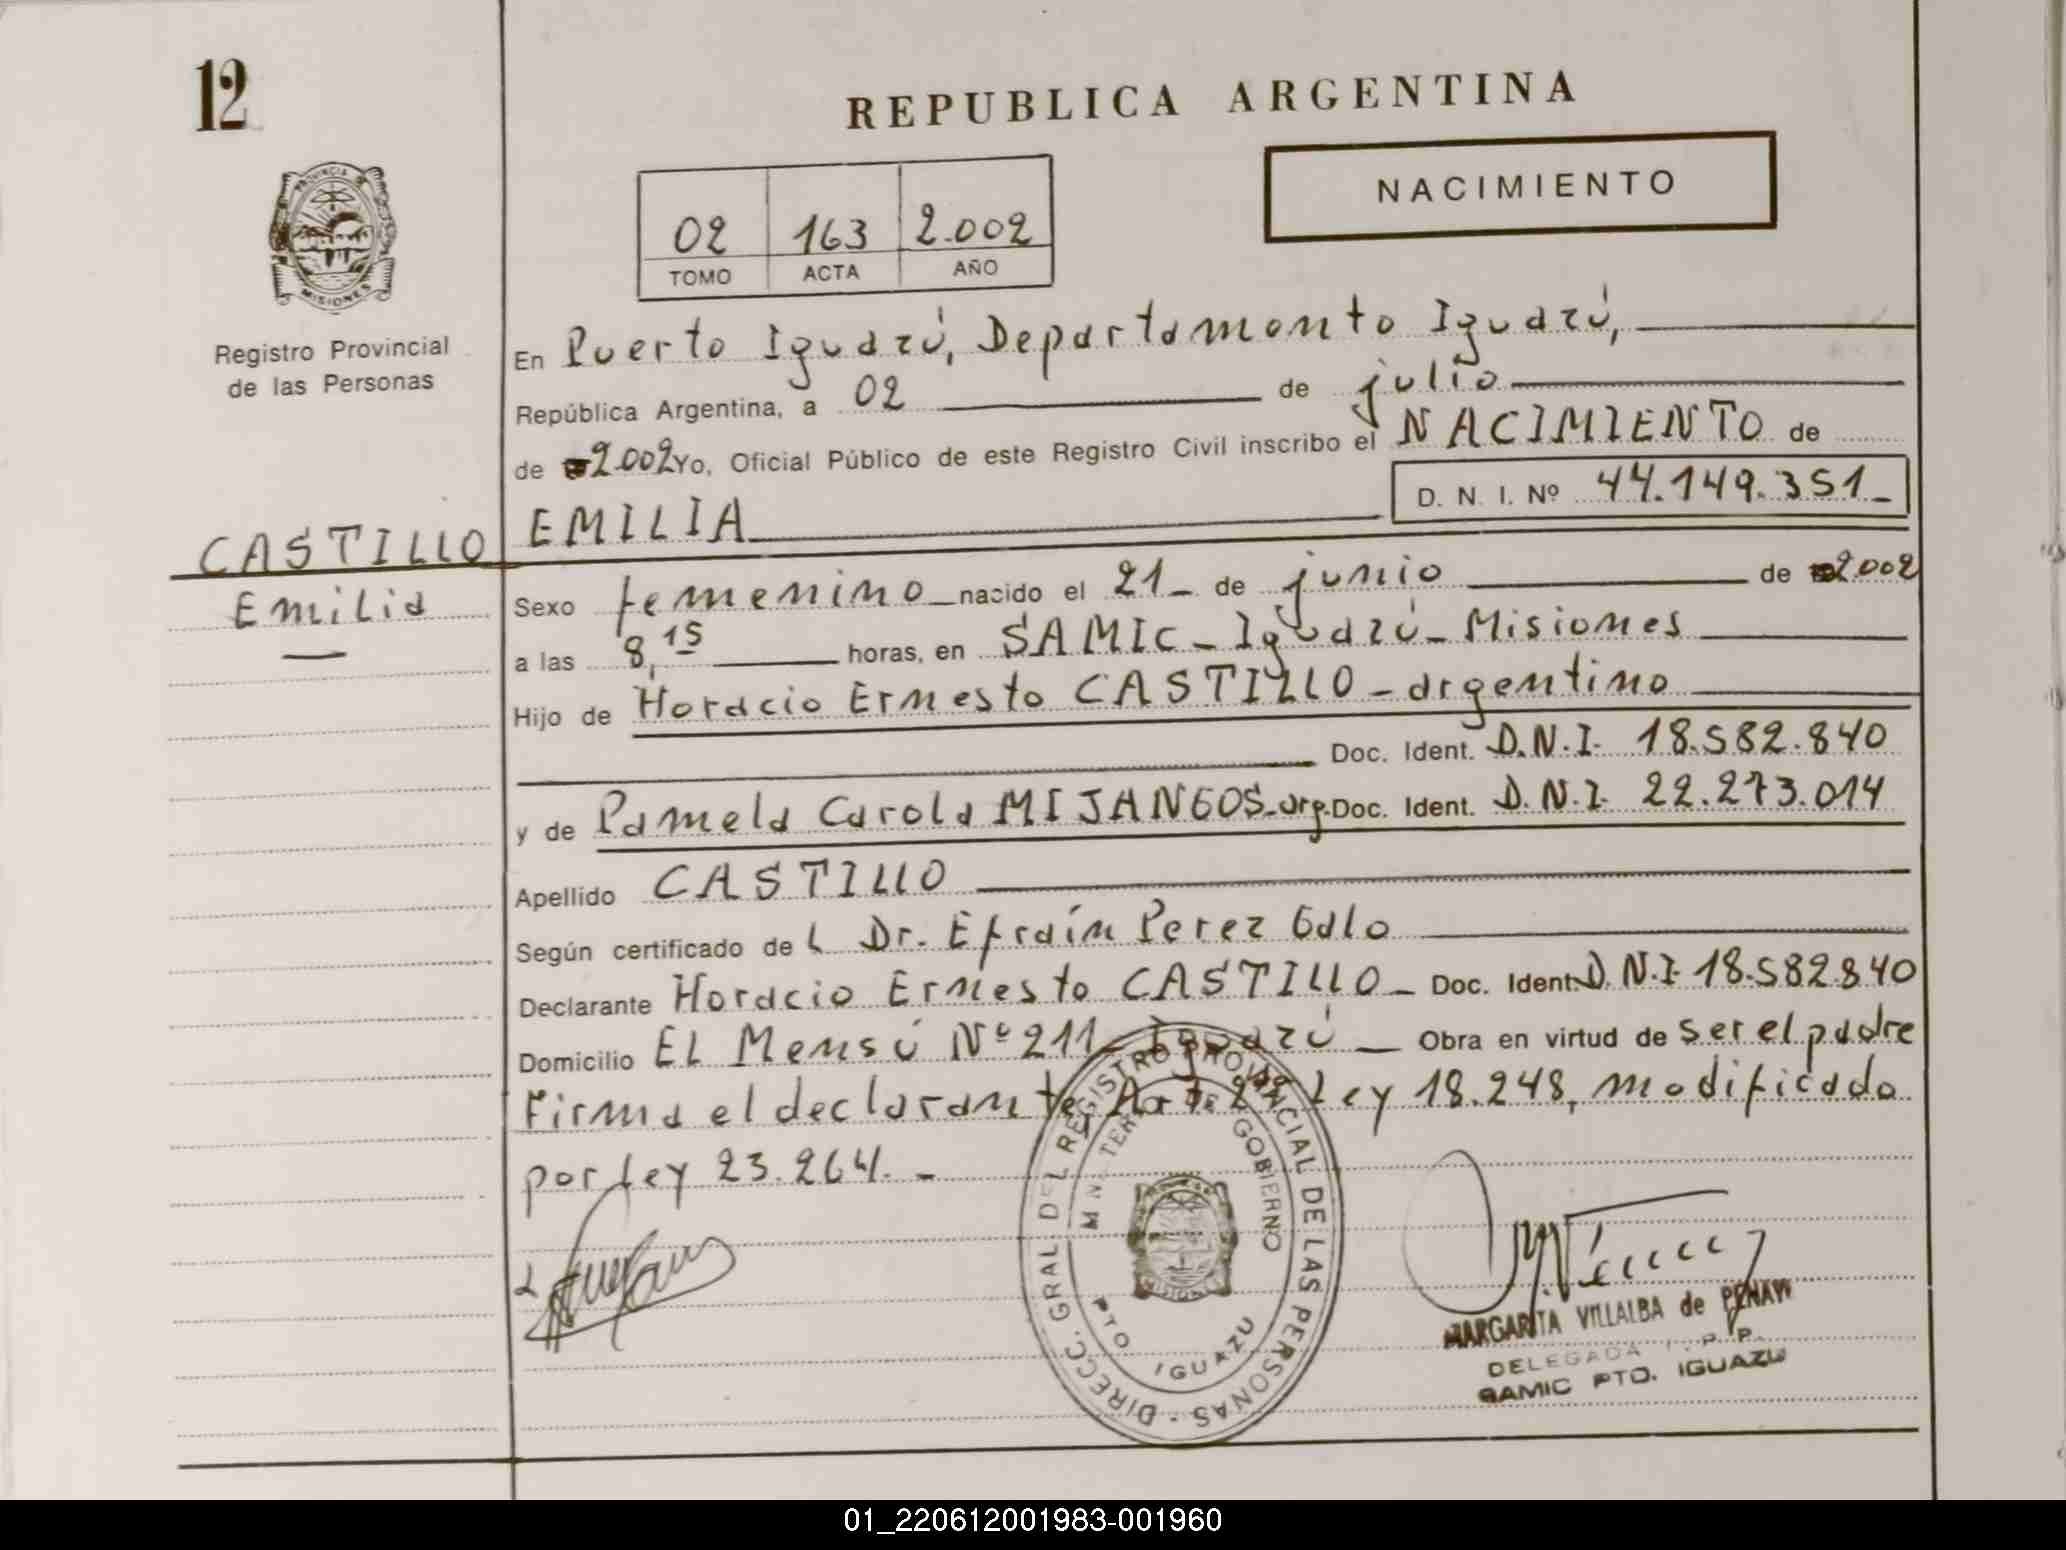 12
REPUBLICA ARGENTINA
NACIMIENTO
PROVINCIA DE
MISIONES
02 163 2.002
TOMO ACTA AÑO
Registro Provincial
de las Personas
En Puerto Iguazú, Departamento Iguazú,
República Argentina, a 02 de julio
de 2.002 Yo, Oficial Público de este Registro Civil inscribo el NACIMIENTO de
D. N. I. Nº 44.149.351_
CASTILLO
Emilia
EMILIA
Sexo femenino nacido el 21_ de junio de 2.002
a las 8,15 horas, en SAMIC_Iguazú_Misiones
Hijo de Horacio Ernesto CASTILLO_argentino
Doc. Ident. D.N.I. 18.582.840
y de Pamela Carola MIJANGOS_arg. Doc. Ident. D.N.I. 22.273.014
Apellido CASTILLO
Según certificado del Dr. Efraín Perez Galo
Declarante Horacio Ernesto CASTILLO_ Doc. Ident. D.N.I. 18.582.840
Domicilio EL Mensú Nº 211_Iguazú_ Obra en virtud de ser el padre
Firma el declarante, Ley 18.248, modificado
por Ley 23.264._
DIRECC. GRAL DEL REGISTRO PROVINCIAL DE LAS PERSONAS -
MINISTERIO DE GOBIERNO
MISIONES
PTO IGUAZU
MARGARITA VILLALBA de
DELEGADA
SAMIC PTO. IGUAZU
01_220612001983-001960